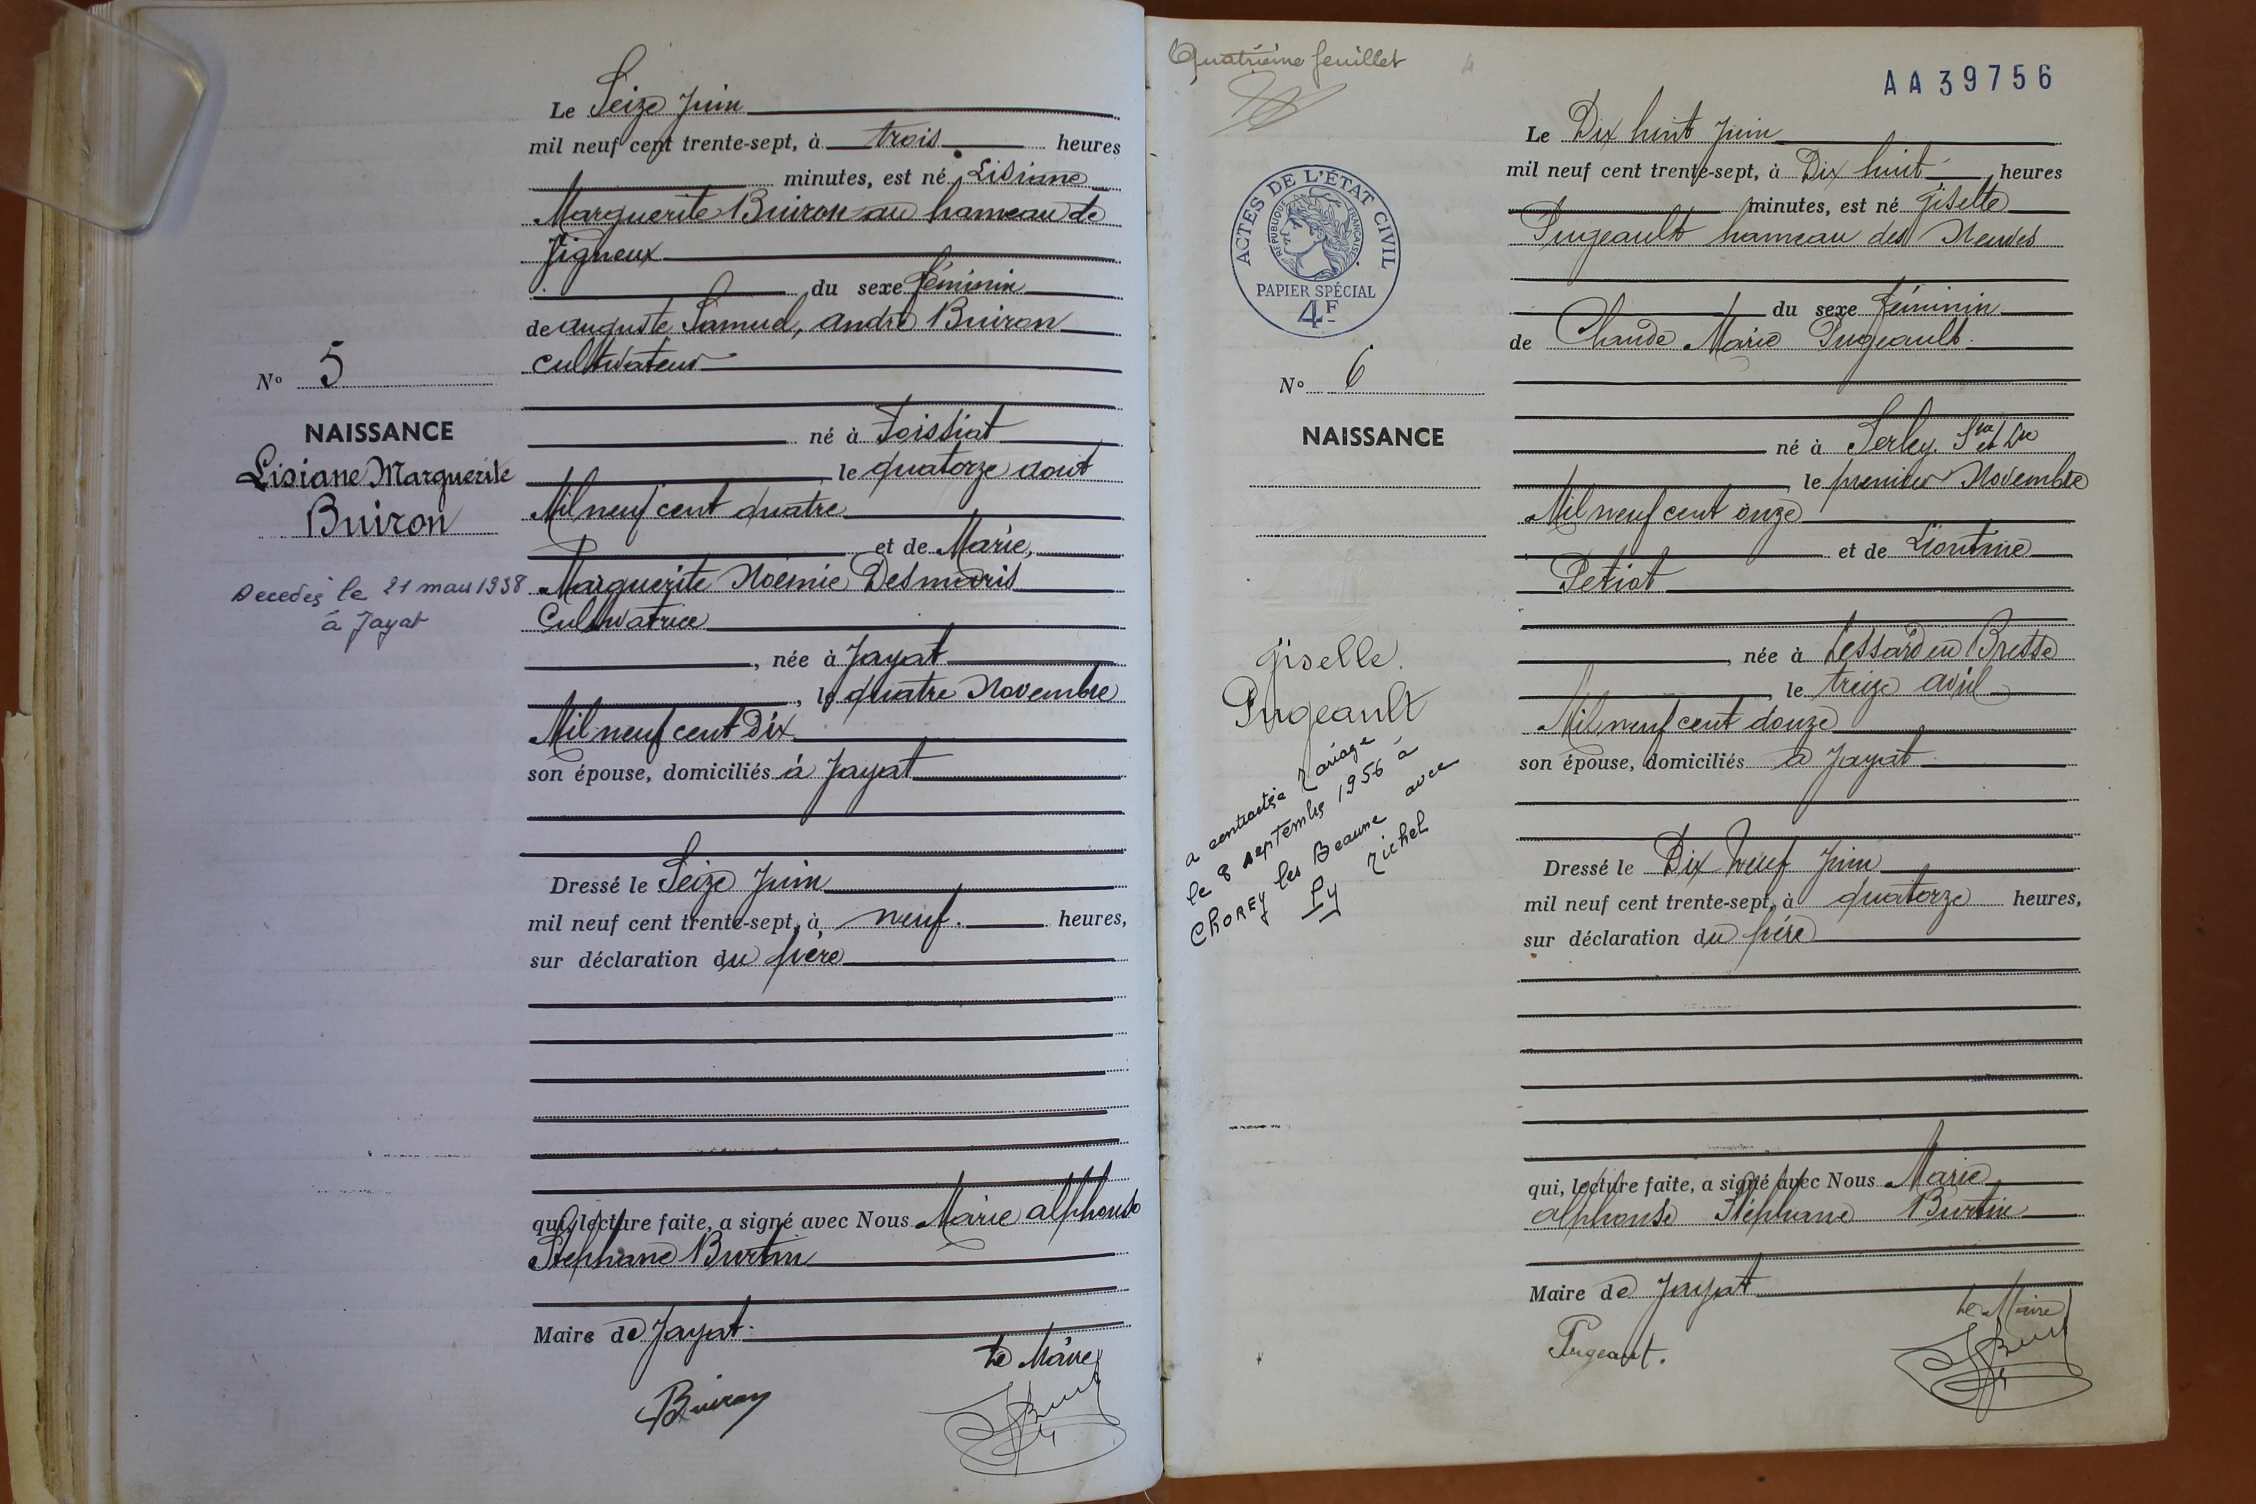 Le Seize Juin
mil neuf cent trente-sept, à trois heures
minutes, est né Lisiane
Marguerite Buiron au hameau de
Vigneux
du sexe féminin
de auguste Samuel, andré Buiron
cultivateur
N° 5
NAISSANCE
Lisiane Marguerite
Buiron
Decedeé le 21 mars 1938
à Jayat
né à Foissiat
, le quatorze aout
Mil neuf cent quatre
et de Marie,
Marguerite Noémie Desmaris
Cultivatrice
, née à Jayat
, le quatre Novembre
Mil neuf cent Dix
son épouse, domiciliés à Jayat
Dressé le Seize Juin
mil neuf cent trente-sept, à neuf. heures,
sur déclaration du père
qui, lecture faite, a signé avec Nous Marie alphonse
Stéphane Burtin
Maire de Jayat.
Le Maire
Buiron
Quatrième feuillet
4
AA39756
Le Dix huit Juin
mil neuf cent trente-sept, à Dix huit heures
minutes, est né Giselle
Pugeault hameau des
du sexe féminin
de Claude Marie Pugeault
ACTES DE L'ÉTAT CIVIL
RÉPUBLIQUE FRANÇAISE
PAPIER SPÉCIAL
4F
N° 6
NAISSANCE
Giselle.
Pugeault
a contractée Mariage
le 8 septembre 1956 à
CHOREY les Beaune avec
Py Michel
né à Serley. S. et L.
, le premier Novembre
Mil neuf cent onze
et de Léontine
Petiot
, née à Lessard en Bresse
, le treize avril
Mil neuf cent douze
son épouse, domiciliés à Jayat
Dressé le Dix Neuf Juin
mil neuf cent trente-sept, à quatorze heures,
sur déclaration du père
qui, lecture faite, a signé avec Nous Marie
alphonse Stéphane Burtin
Maire de Jayat
Le Maire
Pugeaut.